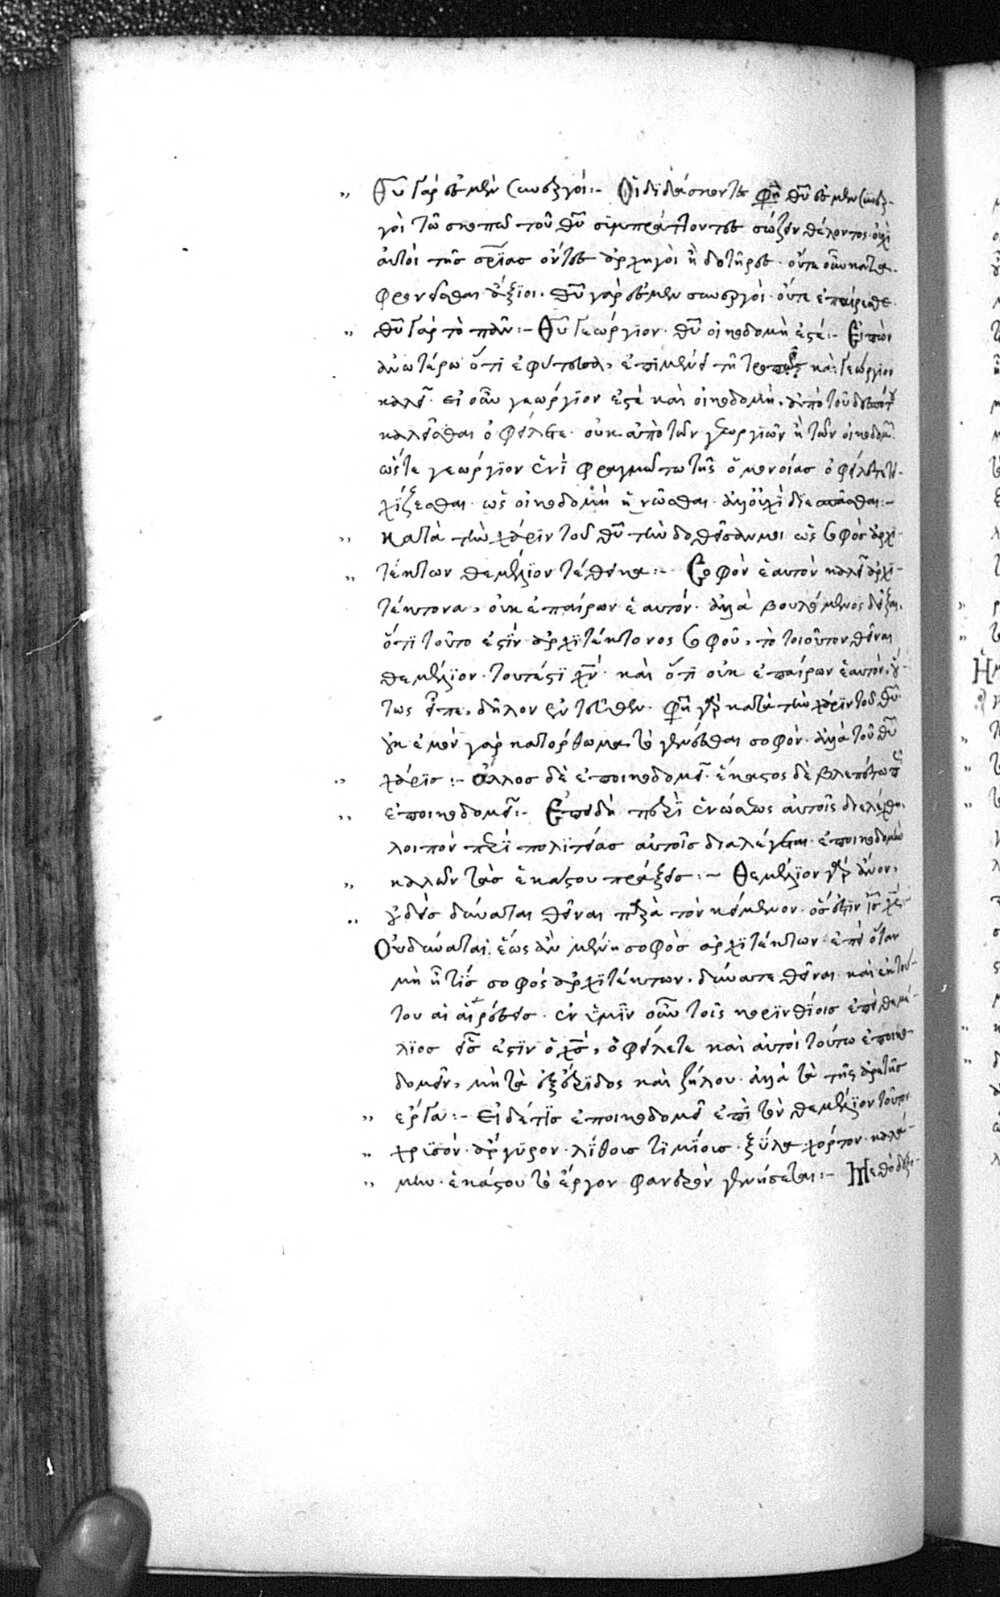 Θῦ γάρ ἐσμεν συνεργοί:- Οἱ διδάσκοντες φη θῦ ἐσμεν συνερ-
γοὶ τῶ σκοπῶ τοῦ θῦ συμπράττοντες σώζειν θέλοντος· οὐχὶ
αὐτοὶ τῆς σρίας ὄντες ἀρχηγοὶ ἢ δοτῆρες· οὔτε οὖν κατα-
φρονεῖσθαι ἄξιοι· θῦ γάρ ἐσμεν συνεργοί· οὔτε ἐπαίρεσθε
θῦ γὰρ τὸ πᾶν:- Θῦ γεώργιον· θῦ οἰκοδομή ἐστέ:- Εἰπὼν
ἀνωτέρω ὅτι ἐφύτευσα, ἐπιμένει τῆ τροπῆ καὶ γεώργιον
καλεῖ· εἰ οὖν γεώργιον ἐστὲ καὶ οἰκοδομή, ἀπὸ τοῦ δεσπότου
καλεῖσθαι ὀφείλετε· οὐκ ἀπὸ τῶν γεωργῶν ἢ τῶν οἰκοδόμ
ὥστε γεώργιον ἑνὶ φραγμῶ τῶ τῆς ὁμονοίας ὀφείλετε τει-
χίζεσθαι· ὡς οἰκοδομὴ ἡνῶσθαι· ἀλλ' οὐχὶ διεσπᾶσθαι:-
Κατὰ τὴν χάριν τοῦ θῦ τὴν δοθεῖσαν μοι ὡς σοφὸς ἀρχι-
τέκτων θεμέλιον τέθεικα:- Σοφὸν ἑαυτὸν καλεῖ ἀρχι-
τέκτονα, οὐκ ἐπαίρων ἑαυτόν· ἀλλὰ βουλόμενος δεῖξαι,
ὅτι τοῦτο ἐστὶν ἀρχιτέκτονος σοφοῦ, τὸ τοιοῦτον θεῖναι
θεμέλιον· τουτέστι χν· καὶ ὅτι οὐκ ἐπαίρων ἑαυτὸν οὕ-
τως εἶπε, δῆλον ἐντεῦθεν· φη γὰρ κατὰ τὴν χάριν τοῦ θῦ
οὐκ ἐμὸν γὰρ κατόρθωμα τὸ γενέσθαι σοφόν· ἀλλὰ τοῦ θῦ
χάρις:- Ἄλλος δὲ ἐποικοδομεῖ· ἕκαστος δὲ βλεπέτω πῶς
ἐποικοδομεῖ:- Ἐπειδὴ περὶ ἑνώσεως αὐτοῖς διελέχθη,
λοιπὸν περὶ πολιτείας αὐτοῖς διαλέγεται· ἐποικοδομὴν
καλῶν τὰς ἑκάστου πράξεις:- Θεμέλιον γὰρ ἄλλον,
οὐδεὶς δύναται θεῖναι παρὰ τὸν κείμενον· ὅς ἐστιν ις χς·
Οὐ δύναται, ἕως ἂν μένη σοφὸς ἀρχιτέκτων· ἐπεὶ ὅταν
μὴ ἦ τις σοφὸς ἀρχιτέκτων, δύναται θεῖναι· καὶ ἐκ τού-
του αἱ αἱρέσεις· ἐν ὑμῖν οὖν τοῖς κορινθίοις ἐπεὶ θεμέ-
λιος εἷς ἐστὶν ὁ χς, ὀφείλετε καὶ αὐτοὶ τούτω ἐποικο-
δομεῖν, μὴ τὰ ἐξ ἔριδος καὶ ζήλου· ἀλλὰ τὰ τῆς ἀρετῆς
ἔργα:- Εἰ δέ τις ἐποικοδομεῖ ἐπὶ τὸν θεμέλιον τοῦτον
χρυσόν· ἄργυρον· λίθοις τιμίοις· ξύλα· χόρτον· καλά-
μην· ἑκάστου τὸ ἔργον φανερὸν γενήσεται:- Μεθόδευσ-